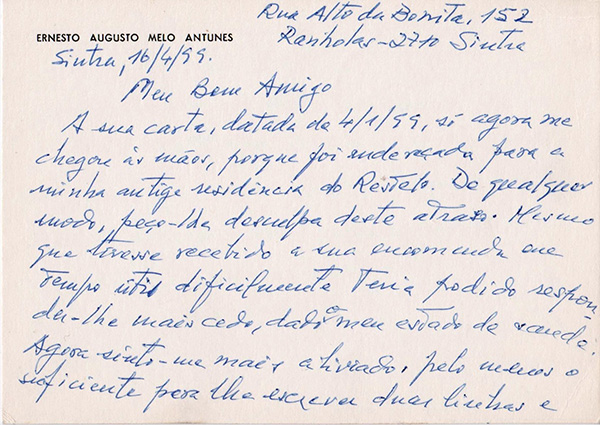 Rua Alto da Bonita, 152
ERNESTO AUGUSTO MELO ANTUNES
Ranholas - 2710 Sintra
Sintra, 16/4/99.
Meu Bom Amigo
A sua carta, datada de 4/1/99, só agora me
chegou às mãos, porque foi endereçada para a
minha antiga residência do Restelo. De qualquer
modo, peço-lhe desculpa deste atraso. Mesmo
que tivesse recebido a sua encomenda em
tempo útil dificilmente teria podido respon-
der-lhe mais cedo, dado o meu estado de saúde.
Agora sinto-me mais aliviado, pelo menos o
suficiente para lhe escrever duas linhas e